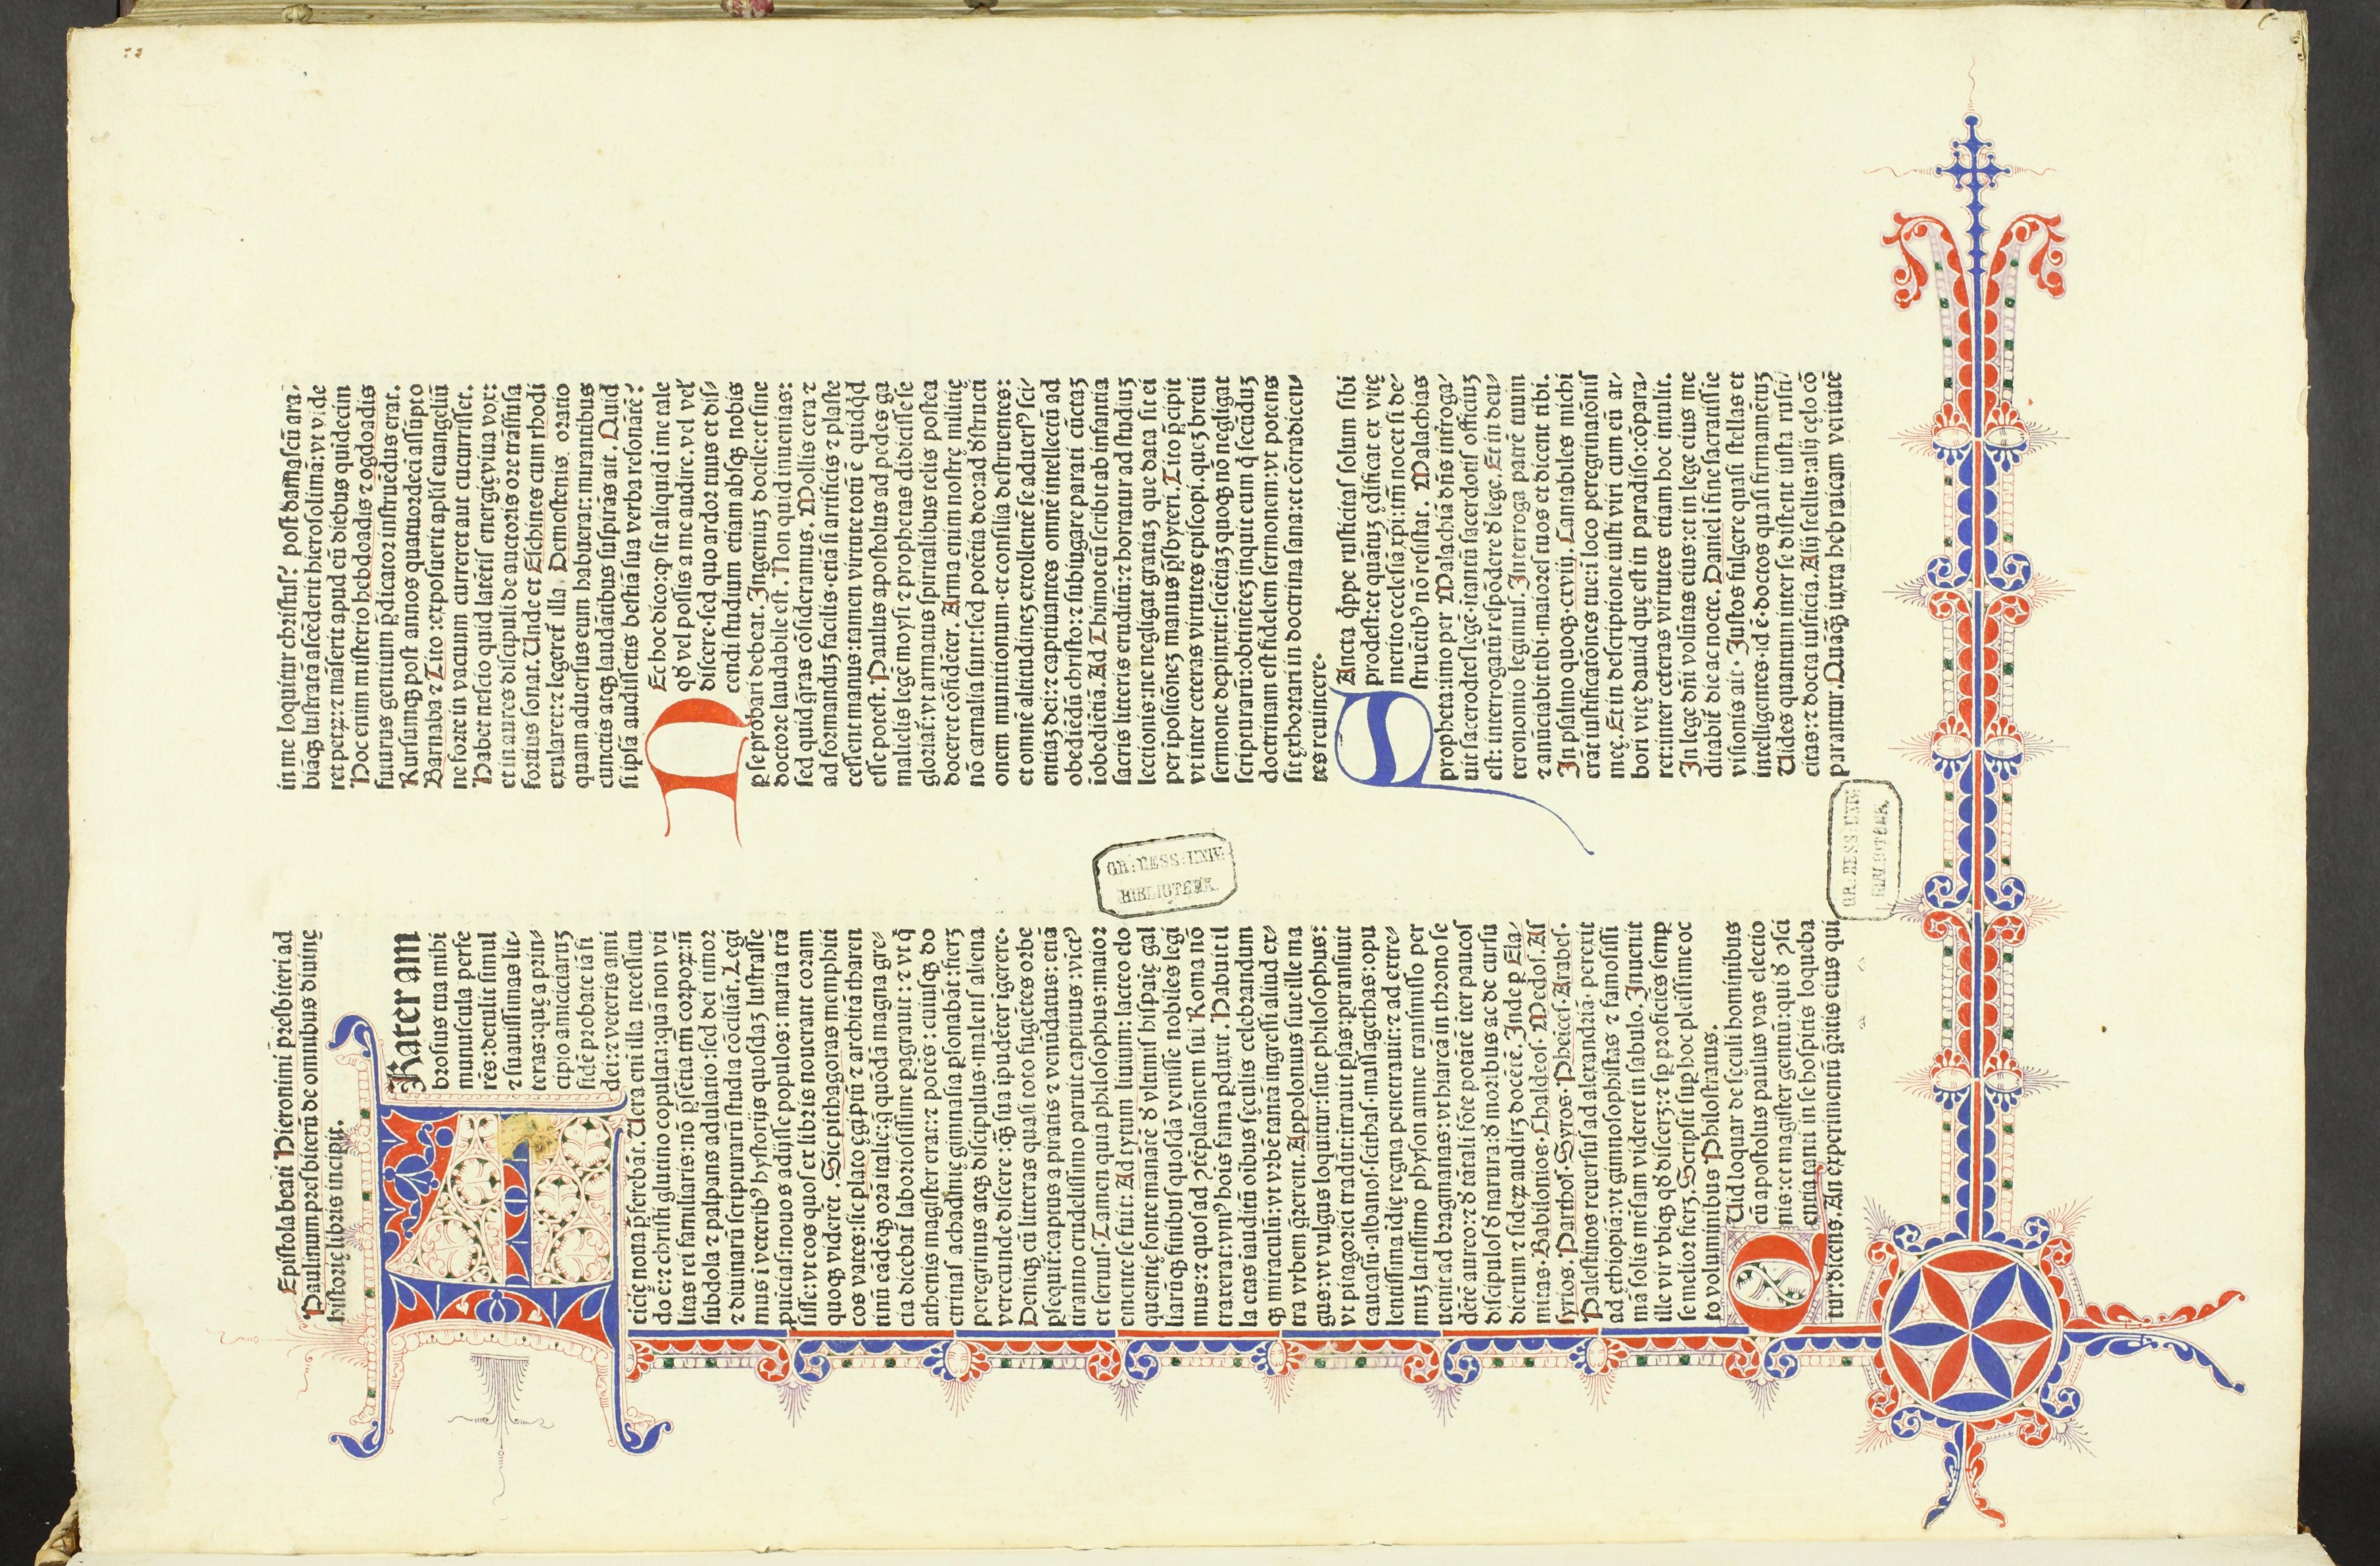 Epistola beati Hieronimi presbiteri ad
Paulinum presbiterū de omnibus diuinę
historię libris incipit.
Frater am
brosius tua mihi
munuscula perfe
rēs: detulit simul
⁊ suauissimas lit⸗
teras: quę a prin⸗
cipio amicitiaruꝫ
fidē probate iā fi
dei: ⁊ veteris ami
cicię noua p̄ferebāt. Uera eni̅ illa necessitu
do ē: ⁊ christi glutino copulata: quā non vti
litas rei familiaris: nō p̄sētia tm̄ corpoꝝ: nō
subdola ⁊ palpans adulatio: sed dei timor
⁊ diuinarū scripturarū studia cōciliāt. Legi
mus ī veterib⁹ hystorijs quosdaꝫ lustrasse
puīcias: nouos adijsse populos: maria trā
sisse: vt eos quos ex libris nouerant coram
quoqꝫ viderēt. Sic pithagoras memphiti
cos vates: sic plato ęgiptū ⁊ architā tharen
tinū eādēqꝫ orā italię: q̄ quōdā magna gre⸗
cia dicebat̄ laboriosissime pagrauit: ⁊ vt q̄
athenis magister erat: ⁊ potēs: cuiusqꝫ do
ctrinas achadmię gimnasia psonabāt: fierꝫ
peregrinus atqꝫ discipulus. malens aliena
verecunde discere: qꝫ sua ipudēter igerere.
Deniqꝫ cū litteras quasi toto fugiētes orbe
psequit̄: captus a piratis ⁊ venūdatus: etiā
tiranno crudelissimo paruit captiuus: vict⁹
et seruus. Tamen quia philosophus: maior
emente se fuit: Ad tytum liuium: lacteo elo
quentię fonte manātē ꝺ vltimis hispaię gal
liarūqꝫ finibus quosdā venisse nobiles legi
mus: ⁊ quos ad ꝯtēplatōnem sui Roma nō
traxerat: vni⁹ hoīs fama pduxit. Habuit il
la etas iauditū oībus sęculis celebrandum
qꝫ miraculū: vt vrbē tanta ingressi aliud ex⸗
tra vrbem q̄rerent. Appolonius siue ille ma
gus: vt vulgus loquitur: siue philosophus:
vt pitagorici tradūt: itrauit psas: ptransiuit
caucasū: albanos. scithas. massagethas: opu
lentissima īdię regna penetrauit: ⁊ ad extre⸗
muꝫ latissimo physon amne transmisso per
uenit ad bragmanas: vt hiarcā in throno se
dētē aureo: ⁊ ꝺ tātali fōte potātē iter paucos
discipulos ꝺ natura: ꝺ moribus ac de cursu
dierum ⁊ sideꝝ audirꝫ docētē. Inde p Ela⸗
mitas. Babilonios. Chaldeos. Medos. As
syrios. Parthos. Syros. Pheices. Arabes.
Palestinos reuersus ad alexandriā. perexit
ad ethiopiā: vt gimnosophistas ⁊ famosissi
mā solis mēsam videret in sabulo. Inuenit
ille vir vbiqꝫ qꝺ discerꝫ: ⁊ sp proficiēs semp
se melior fierꝫ. Scripsit sup hoc pleissime oc
to voluminibus Philostratus.
Quid loquar de sęculi hominibus
cū apostolus paulus vas electio
nis: et magister gentiū: qui ꝺ ꝯsci
entia tanti in se hospitis loqueba
tur: dicens. An experimentū q̄ritis eius qui
in me loquitur christus? post damascū ara⸗
biāqꝫ lustratā ascēderit hierosolimā: vt vide
ret petꝝ: ⁊ māserit apud eū diebus quidecim
Hoc enim misterio hebdoadis ⁊ ogdoadis
futurus gentium p̄dicator instruēdus erat.
Rursumqꝫ post annos quatuordeci assūpto
Barnaba ⁊ Tito: exposuerit aplīs euangeliū
ne forte in vacuum curreret aut cucurrisset.
Habet nescio quid latētis energię viua vox:
et in aures discipuli de auctoris ore trāsfusa
fortius sonat. Unde et Eschines cum rhodi
exularet: ⁊ legeret̄ illa Demostenis oratio
quam aduersus eum habuerat: mirantibus
cunctis atqꝫ laudātibus suspirās ait. Quid
si ipsā audissetis bestiā sua verba resonātē?
Nec hoc dico: ꝙ sit aliquid in me tale
qꝺ vel possis a me audire. vel vel'
discere. sed quo ardor tuus et dis⸗
cendi studium etiam absqꝫ nobis
p se probari debeat. Ingeniuꝫ docile: et sine
doctore laudabile est. Non quid inuenias:
sed quid q̄ras cōsideramus. Mollis cera ⁊
ad formanduꝫ facilis. etiā si artificis ⁊ plaste
cessent manus: tamen virtute totū ē quidqꝺ
esse potest. Paulus apostolus ad pedes ga
malielis legē moysi ⁊ prophetas didicisse se
gloriat̄: vt armatus spiritalibus telis postea
doceret cōfidēter. Arma enim nostrę militię
nō carnalia sunt: sed potētia deo: ad dstructi
onem munitionum. et consilia destruentes:
et omnē altitudineꝫ extollentē se aduers⁹ sci⸗
entiaꝫ dei: ⁊ captiuantes omnē intellectū ad
obediēdū christo: ⁊ subiugare parati cūctaꝫ
īobediētiā. Ad Thimoteū scribit ab infantia
sacris litteris eruditū: ⁊ hortatur ad studiuꝫ
lectionis: ne negligat gratiaꝫ que data sit ei
per ipositiōneꝫ manus p̄sbyteri. Tito p̄cipit
vt inter ceteras virtutes episcopi. queꝫ breui
sermone depinxit: sciētiaꝫ quoqꝫ nō negligat
scripturarū: obtinēteꝫ inquit eum q̄ secūduꝫ
doctrinam est fidelem sermonem: vt potens
sit exhortari in doctrina sana: et cōtradicen⸗
tes reuincere.
Sancta q̄ppe rusticitas solum sibi
prodest: et quātuꝫ ędificat ex vitę
merito ecclesiā xp̄i: tm̄ nocet si de⸗
struētib⁹ nō resistat. Malachias
propheta: imo per Malachiā dn̄s interroga⸗
uit sacerdotes lege. itantū sacerdotis officiuꝫ
est: interrogatū respōdere ꝺ lege. Et in deu⸗
teronomio legimus. Interroga patrē tuum
⁊ anūciabit tibi. maiores tuos et dicent tibi.
In psalmo quoqꝫ. cxviij. Cantabiles michi
erāt iustificatōnes tue: ī loco peregrinatōnis
meę. Et in descriptione iusti viri cum eū ar⸗
bori vitę dauid quę est in paradiso: cōpara⸗
ret: inter ceteras virtutes etiam hoc intulit.
In lege dn̄i volūtas eius: et in lege eius me
ditabit̄ die ac nocte. Daniel ī fine sacratissie
visionis ait. Iustos fulgere quasi stellas et
intelligentes. id ē. doctos quasi firmamētuꝫ
Uides quantum inter se distent iusta rusti⸗
citas: ⁊ docta iusticia. Alij stellis: alij cęlo cō
parantur. Quāqꝫ iuxta hebraicam veritatē
GR: HESS: UNIV:
BIBLIOTHEK.
GR: HESS: UNIV:
BIBLIOTHEK.